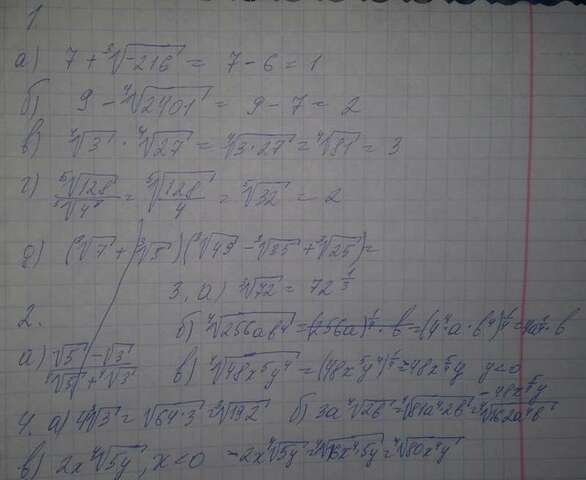 1
а) 7 + ³√-216 = 7 - 6 = 1
б) 9 - ⁴√2401 = 9 - 7 = 2
в) ⁴√3 · ⁴√27 = ⁴√3·27 = ⁴√81 = 3
г) ⁵√128 / ⁵√4 = ⁵√128/4 = ⁵√32 = 2
д) (³√7 + ³√5)(³√49 - ³√35 + ³√25) =
3, а) ³√72 = 72^1/3
2.
б) ⁴√256ab⁴ = (256a)^1/4 · b = (4⁴·a·b⁴)^1/4 = 4a^1/4 · b
а) √5 - √3 / ⁴√5 + ⁴√3
в) ⁴√48x⁵y⁴ = (48x⁵y⁴)^1/4 = 48x^5/4 y y<0
-48x^5/4 y
4. а) 4³√3 = ³√64·3 = ³√192
б) 3a⁴√2b = ⁴√81a⁴2b = ⁴√162a⁴b
в) 2x⁴√5y, x<0 -2x⁴√5y = ⁴√16x⁴·5y = ⁴√80x⁴y